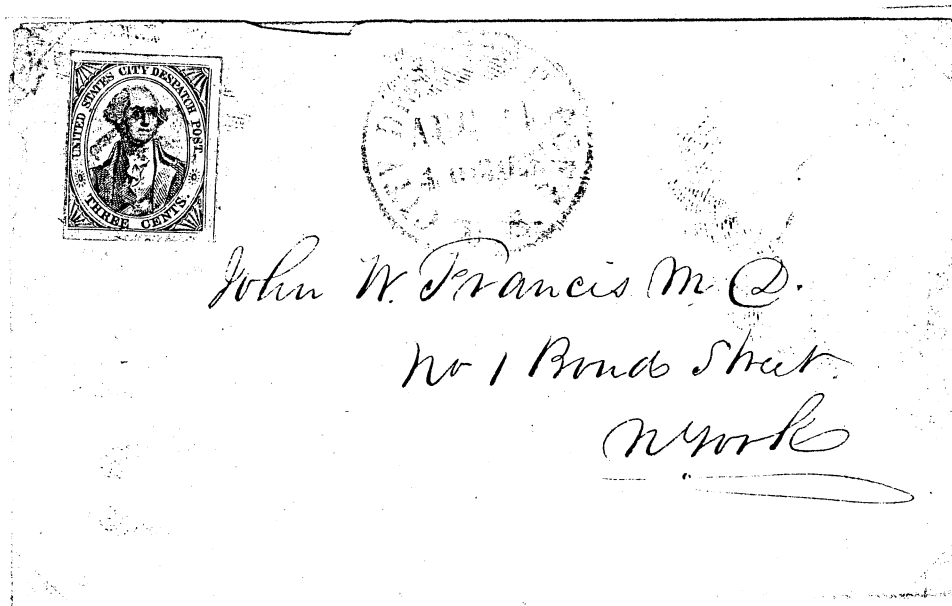 UNITED STATES CITY DESPATCH POST.
THREE CENTS.
John W. Francis M. D.
No 1 Bond Street.
N York